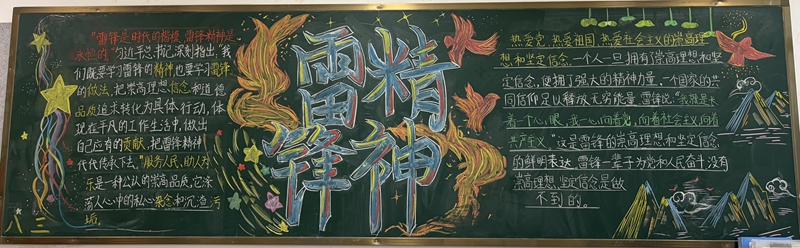 "雷锋是时代的楷模,雷锋精神是
永恒的"习近平总书记深刻指出,"我
们既要学习雷锋的精神也要学习雷锋
的做法,把崇高理想信念和道德
品质追求转化为具体行动,体
现在平凡的工作生活中,做出
自己应有的贡献,把雷锋精神
代代传承下去。"服务人民、助人为
乐是一种公认的崇高品质,它涤
荡人心中的私心杂念和沉渣污
垢。
八三
雷锋
精神
热爱党、热爱祖国、热爱社会主义的崇高理
想和坚定信念。一个人一旦拥有崇高理想和坚
定信念,便拥了强大的精神力量,一个国家的共
同信仰足以释放无穷能量,雷锋说:"我就是长
着一个心眼,我一心向着党,向着社会主义,向着
共产主义。"这是雷锋的崇高理想和坚定信念
的鲜明表达,雷锋一辈子为党和人民奋斗,没有
崇高理想、坚定信念是做
不到的。